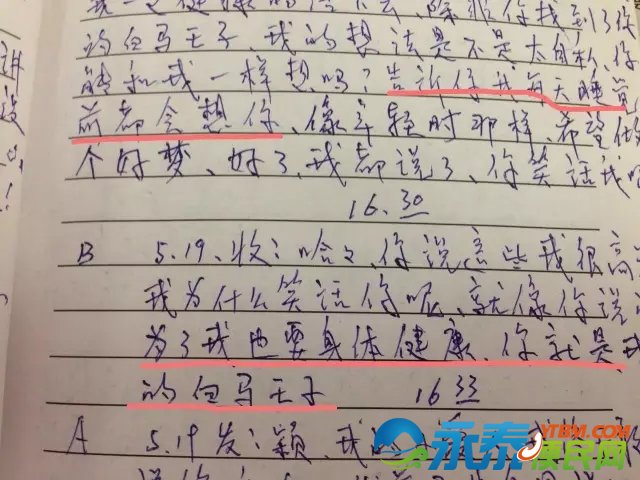 我一定健康的活下去、除非你找到了你
的白马王子、我的想法是不是太自私、你
能和我一样想吗？告诉你我每天睡觉
前都会想你、像年轻时那样、希望做
个好梦、好了、我都说了、你笑话我吧
16.30
B 5.19、收：哈哈、你说这些我很高
我为什么笑话你呢、就像你说
为了我也要身体健康、你就是我
的白马王子 16 33
A 5.19 发：颖、我
讲
永泰便民网
YTBM.COM